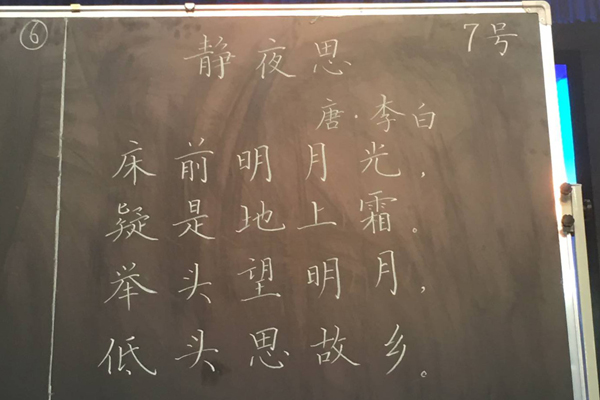 ⑥
7号
静夜思
唐·李白
床前明月光，
疑是地上霜。
举头望明月，
低头思故乡。